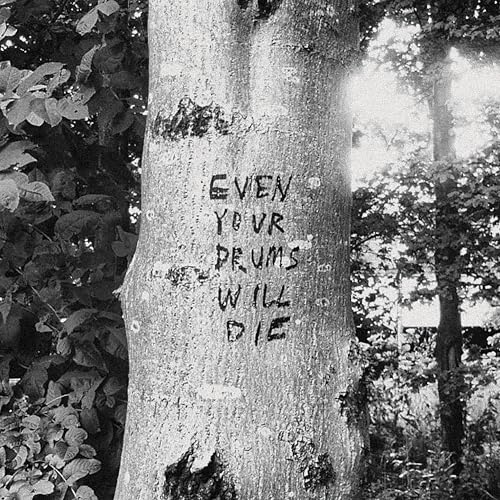 EVEN
YOUR
DRUMS
WILL
DIE